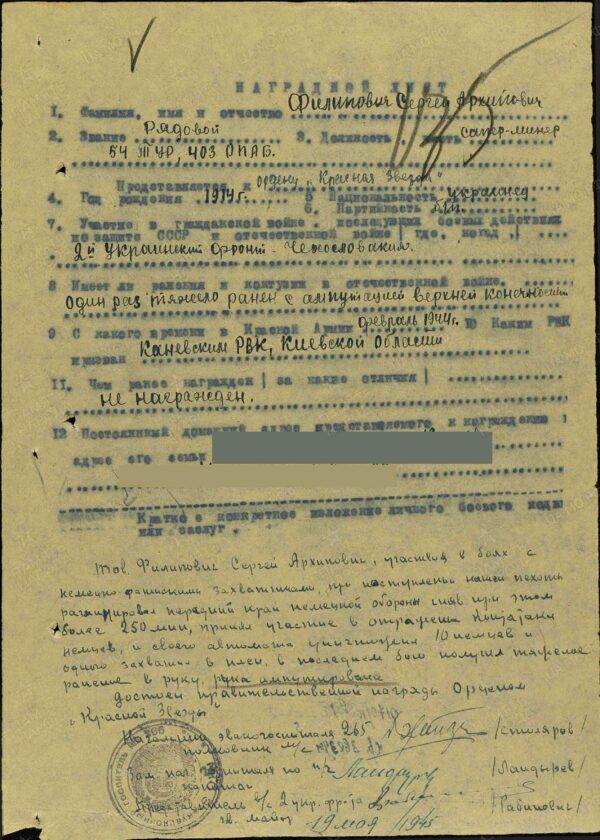 НАГРАДНОЙ ЛИСТ
1. Фамилия, имя и отчество Филипович Сергей Архипович
2. Звание Рядовой 3. Должность, часть сапер-минер
54 ТУР, 403 ОПАБ.
Представляется к ордену "Красная Звезда"
4. Год рождения 1914г. 5 Национальность украинец
6. Партийность б/п
7. Участие в гражданской войне, последующих боевых действиях
по защите СССР и отечественной войне (где, когда)
2й Украинский фронт - Чехословакия.
8 Имеет ли ранения и контузии в отечественной войне.
Один раз тяжело ранен с ампутацией верхней конечности
9 С какого времени в Красной Армии февраль 1944г. 10 Каким РВК
призван Каневским РВК, Киевской области
11. Чем ранее награжден (за какие отличия)
не награжден.
12 Постоянный домашний адрес представляемого к награждению и
адрес его семьи
Краткое конкретное изложение личного боевого подви
или заслуг.
Тов. Филипович Сергей Архипович, участвуя в боях с
немецко-фашискими захватчиками, при наступлении нашей пехоты
разминировал передний край немецкой обороны сняв при этом
более 250 мин, принял участие в отражении контратаки
немцев, и своего автомата уничтожил 10 немцев и
одного захватил в плен, в последнем бою получил тяжелое
ранение в руку, рука ампутирована
Достоен правительственной награды Орденом
"Красной Звезды"
Начальник эвакогоспиталя 265
полковник м/с /Столяров/
Зам. нач. госпиталя по п/ч
капитан /Ландырев/
Представителем в/с 2 укр. фр-та
гв. майор /Рабинович/
19 мая 1945